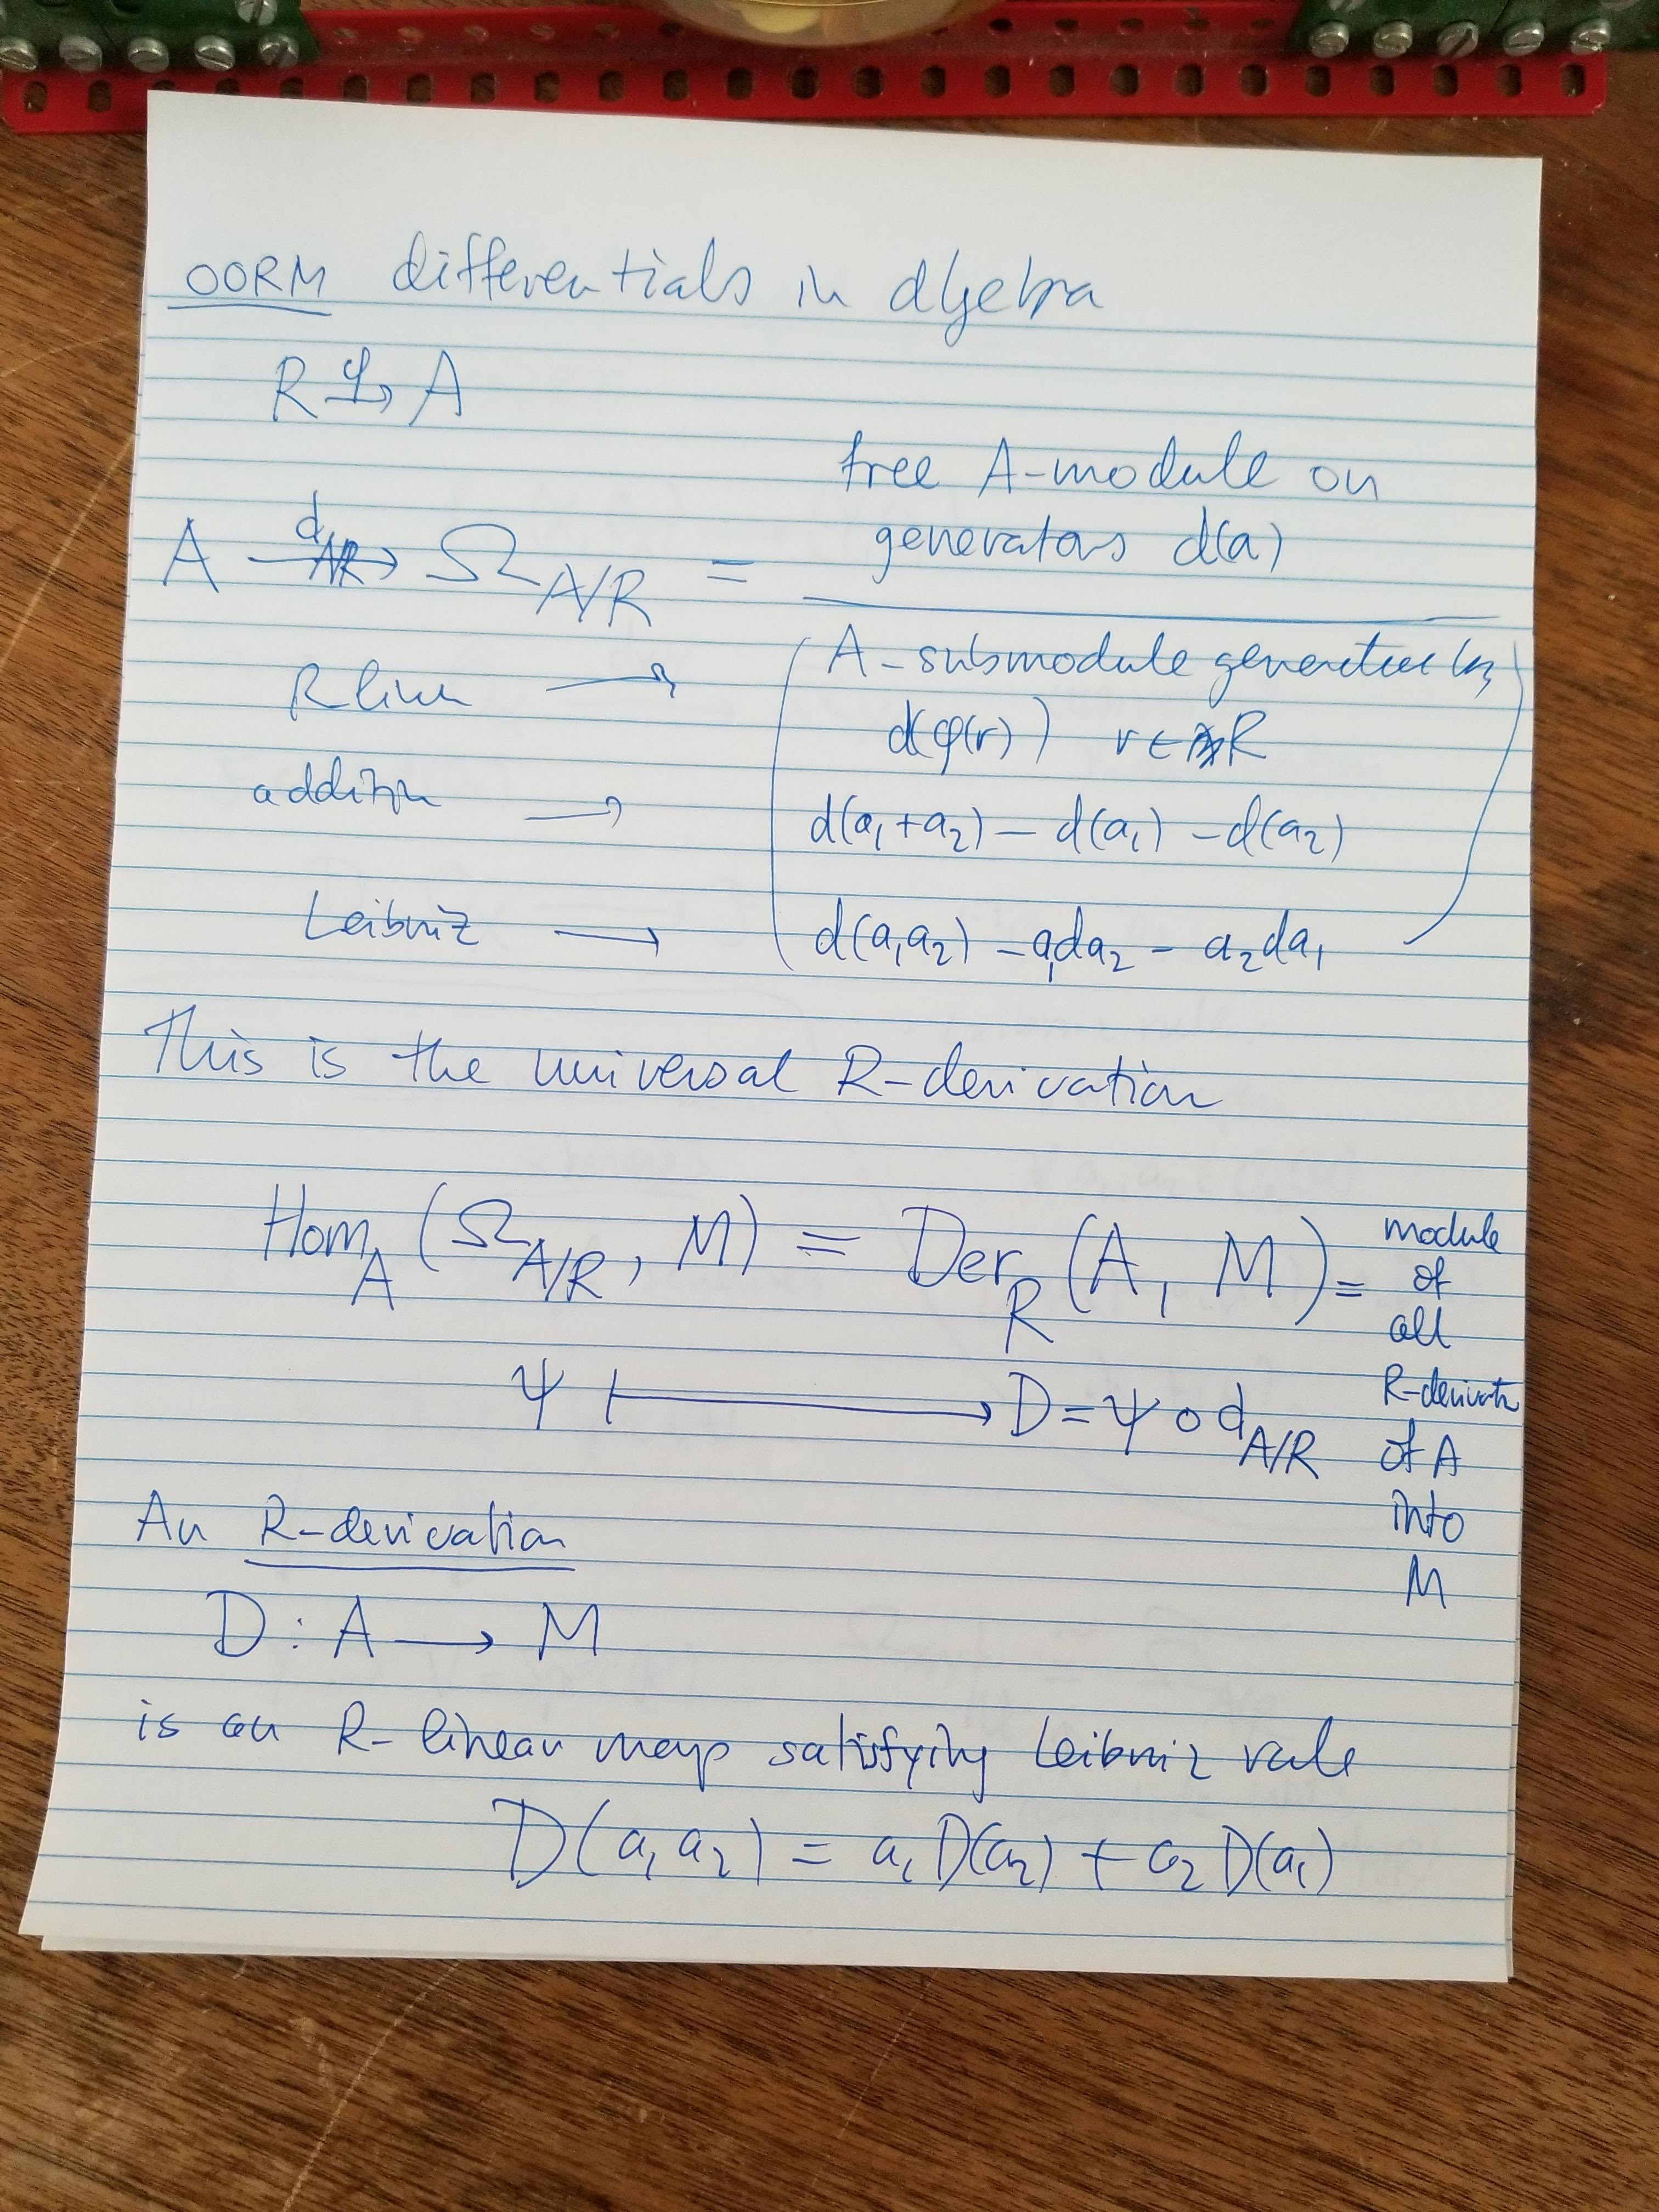 OORM differentials in algebra
R φ→ A
free A-module on
generators d(a)
A d_A/R→ Ω_A/R =
A-submodule generated by
R linear →
d(φ(r)) r ∈ R
addition →
d(a₁+a₂) – d(a₁) – d(a₂)
Leibniz → d(a₁a₂) – a₁da₂ – a₂da₁
This is the universal R-derivation
Hom_A (Ω_A/R, M) = Der_R (A, M) = module
of
all
R-derivations
of A
into
M
ψ ↦ D = ψ ∘ d_A/R
An R-derivation
D : A → M
is an R-linear map satisfying Leibniz rule
D(a₁a₂) = a₁D(a₂) + a₂D(a₁)